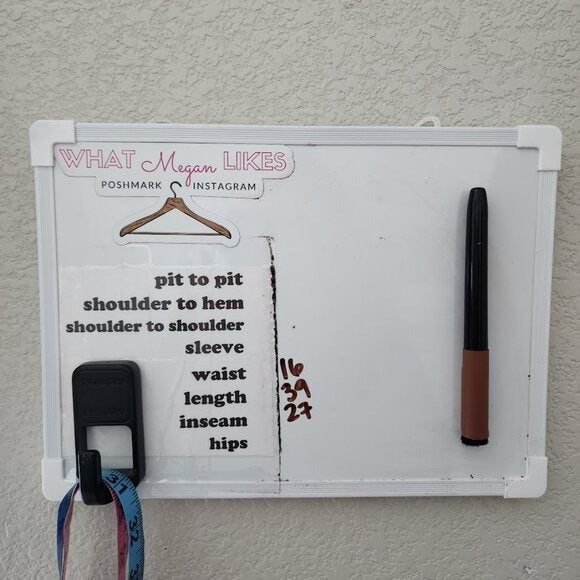 WHAT Megan LIKES
POSHMARK INSTAGRAM
pit to pit
shoulder to hem
shoulder to shoulder
sleeve
waist 16
length 39
inseam 27
hips